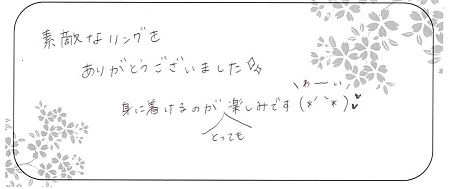 素敵なリングを
ありがとうございました
\わーい/
身に着けるのが楽しみです(*´`*)
とっても